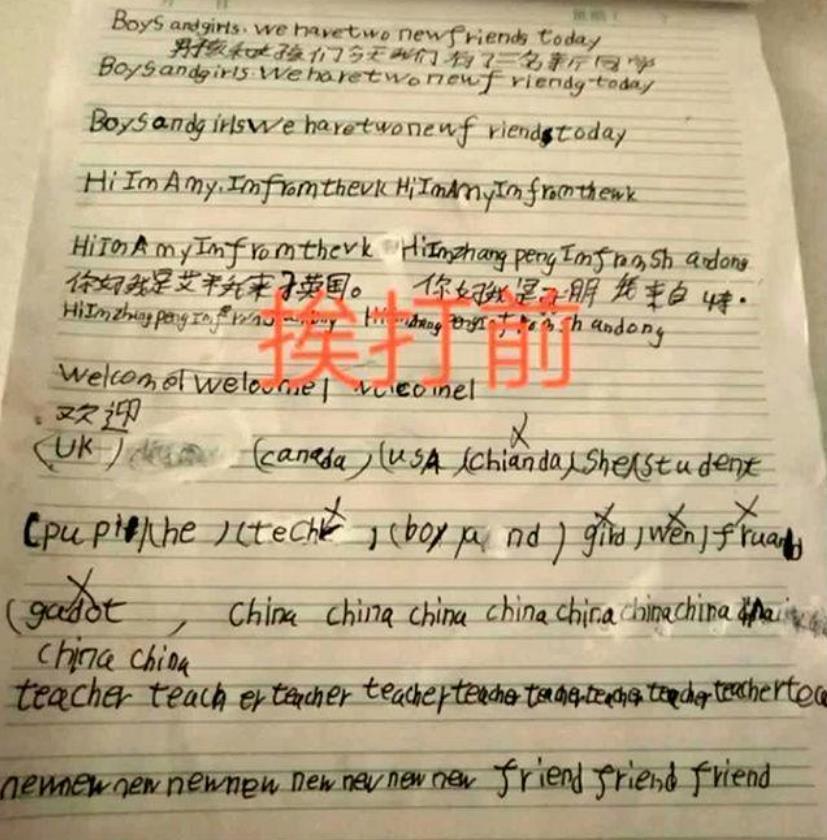 Boys andgirls. we havetwo newfriends today
男孩和女孩们今天我们有了三名新同学
Boysandgirls Wehavetwonewf riendg today
Boysandg irlsWe havetwonewf riendstoday
Hi Im Amy. ImfromtheVk HiImAmyIm fromthewk
HiIm A myImf romthevk HiImzhang peng Imfrom Sh andong
你好我是艾米我来于英国。 你好我是 朋 我来自
HiImzhang peng Imf andong
挨打前
Welcome! Welcome! Welcome!
欢迎
(UK) (canada) (USA (chianda) She(student
(pu pil/he )(teche ) (boy nd ) gird wen fruand
(gadot , China china china china china china china
china china
teacher teach er teacher teacher teacher teacher teacher teacher teacher tea
newnew new newnew new new new new friend friend friend